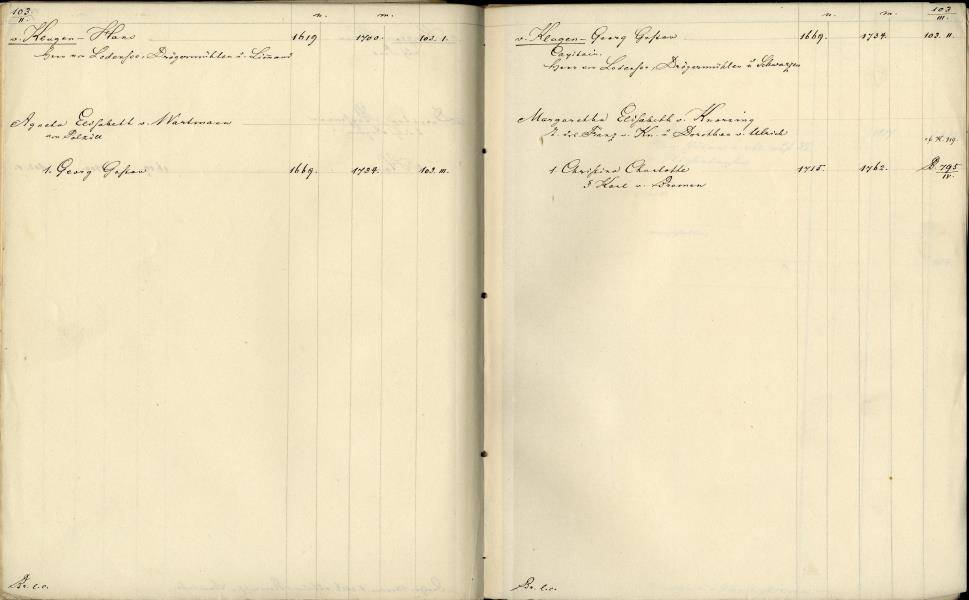 103 n. m.
II.
v. Klugen - Hans 1619 1700. 103. I.
Herr von Lodensee, Drögermühlen u. Limmad
Agneta Elisabeth v. Wartmann
von Polzitt
1. Georg Gustav 1669. 1734. 103. III.
Br. l.c.
n. m. 103
III.
v. Klugen - Georg Gustav 1669. 1734. 103. II.
Capitain.
Herr von Lodensee, Drögermühlen u. Schwarzen
Margaretha Elisabeth v. Knorring
T. des Franz v. Kn. u. Dorothea v. Ulrich
1. Christina Charlotte 1715. 1762. B. 795
IV.
Karl v. Bremen
Br. l.c.